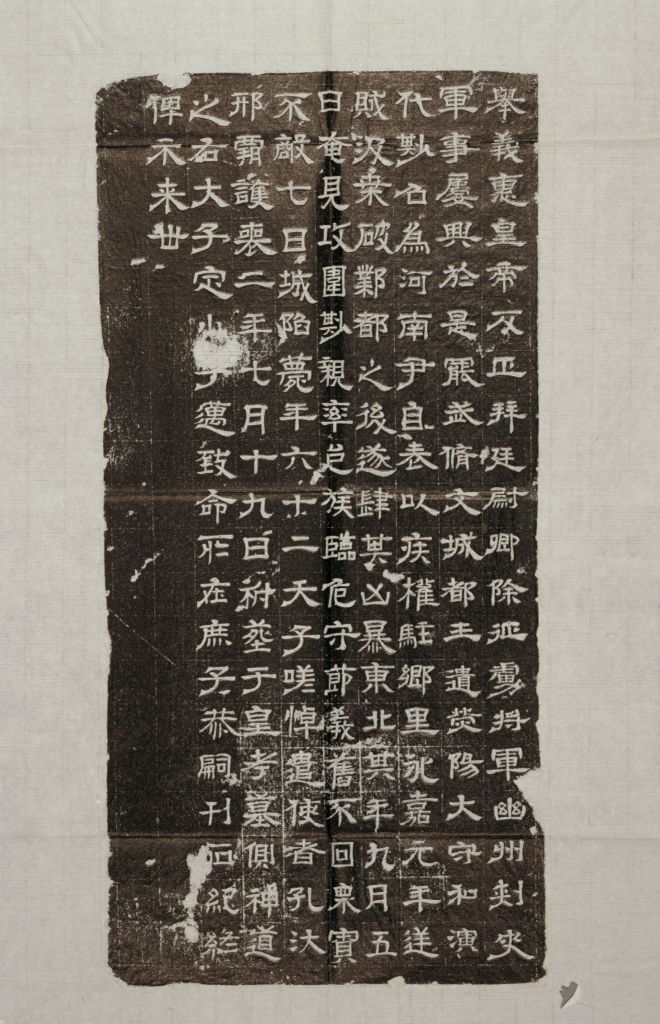 舉義惠皇帝反正拜廷尉卿除征虜將軍幽州刺史
軍事屢興於是罷武脩文城都王遣熒陽大守和演
代尠召為河南尹自表以疾權駐鄉里永嘉元年逆
賊汲桒破鄴都之後遂肆其凶暴東北其年九月五
日奄見攻圍尠親率邑族臨危守節義奮不回眾寡
不敵七日城陷薨年六十二天子嗟悼遣使者孔汏
邢霸護喪二年七月十九日祔葬于皇考墓側神道
之右大子定小子邁致命所在庶子恭嗣刊石紀終
俾示来世